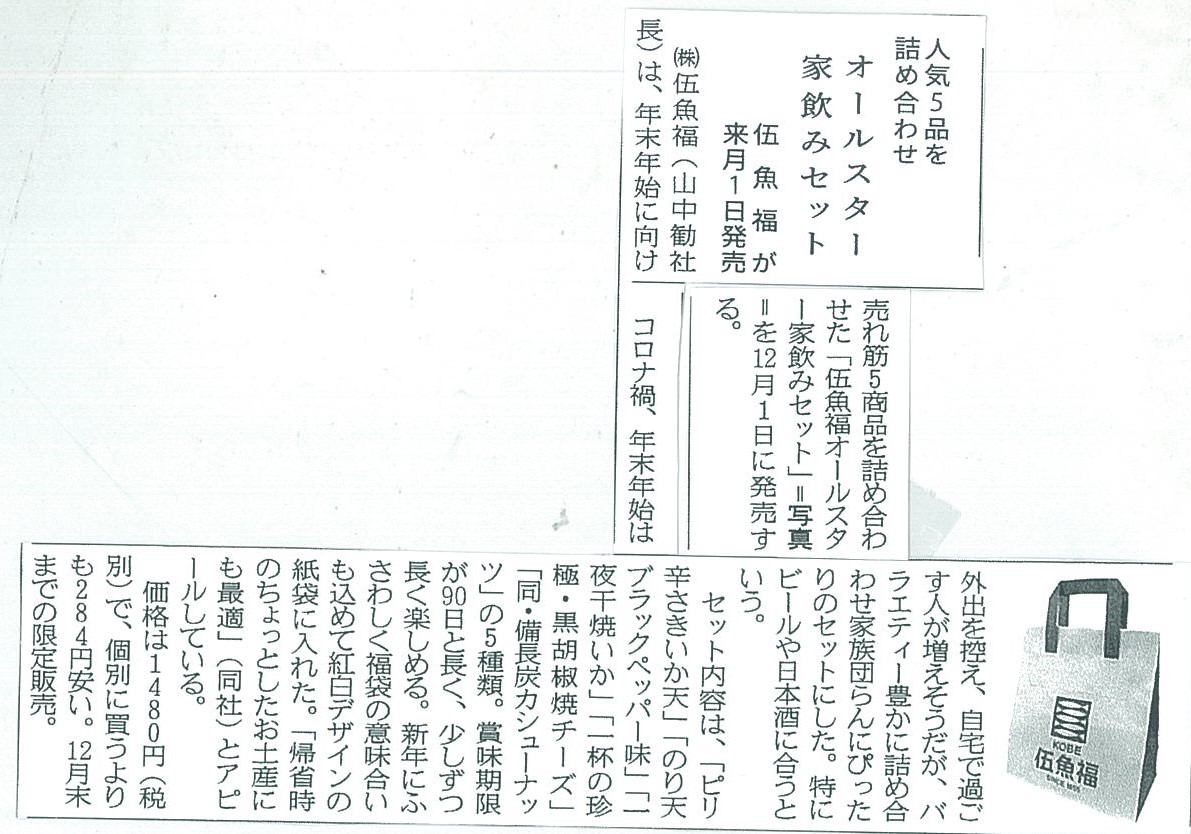 人気5品を
詰め合わせ
オールスター
家飲みセット
伍魚福が
来月1日発売
㈱伍魚福(山中勧社
長)は、年末年始に向け
売れ筋5商品を詰め合わ
せた「伍魚福オールスタ
ー家飲みセット」=写真
=を12月1日に発売す
る。
コロナ禍、年末年始は
外出を控え、自宅で過ご
す人が増えそうだが、バ
ラエティー豊かに詰め合
わせ家族団らんにぴった
りのセットにした。特に
ビールや日本酒に合うと
いう。
セット内容は、「ピリ
辛さきいか天」「のり天
ブラックペッパー味」「一
夜干焼いか」「一杯の珍
極・黒胡椒焼チーズ」
「同・備長炭カシューナッ
ツ」の5種類。賞味期限
が90日と長く、少しずつ
長く楽しめる。新年にふ
さわしく福袋の意味合い
も込めて紅白デザインの
紙袋に入れた。「帰省時
のちょっとしたお土産に
も最適」(同社)とアピ
ールしている。
価格は1480円(税
別)で、個別に買うより
も284円安い。12月末
までの限定販売。
KOBE
伍魚福